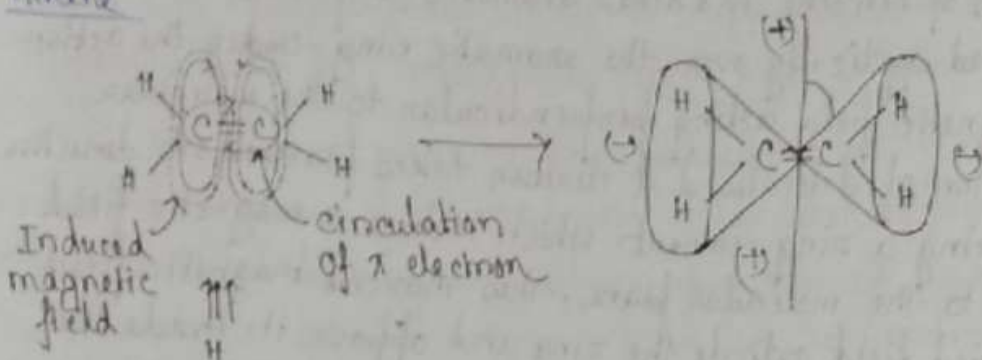 H H
C = C
H H
Induced
magnetic
field
circulation
of π electron
H
(+)
H H
(-) C = C (-)
H H
(+)